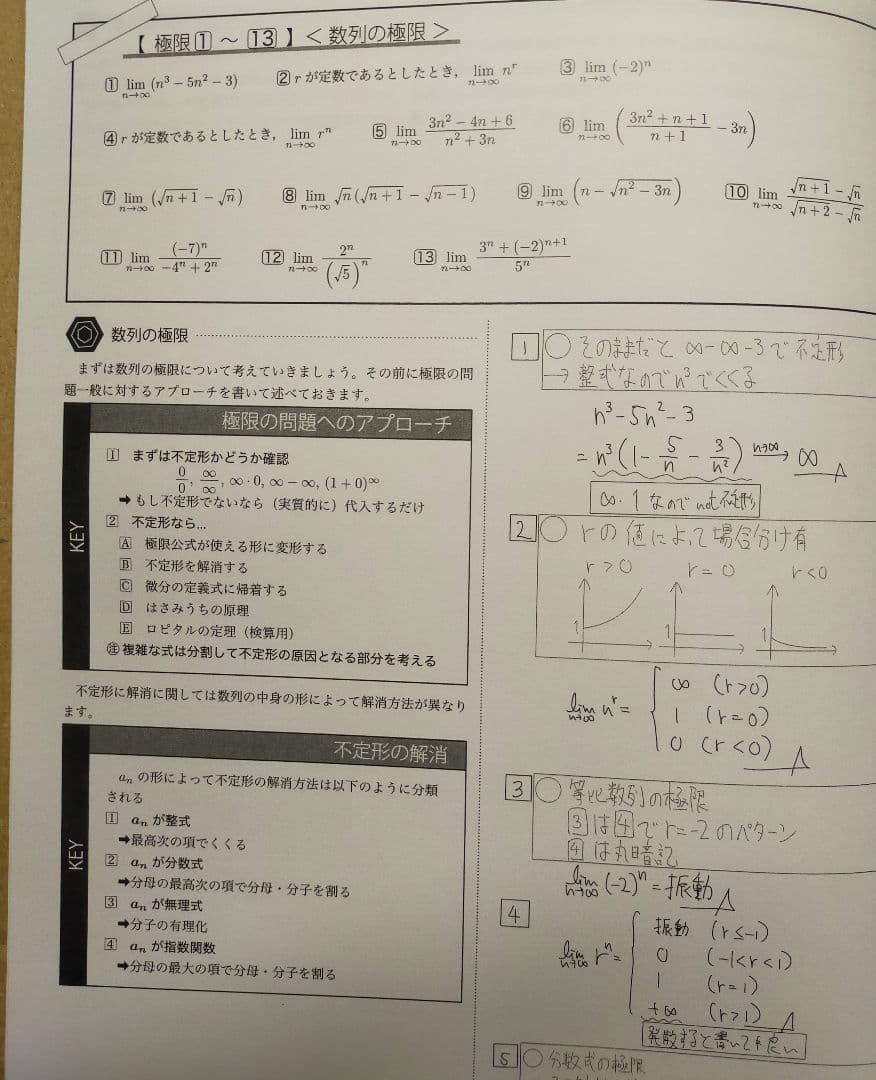 【 極限1 ～ 13 】＜ 数列の極限 ＞
1 lim_{n→∞} (n³ − 5n² − 3)　2 r が定数であるとしたとき，lim_{n→∞} n^r　3 lim_{n→∞} (−2)^n
4 r が定数であるとしたとき，lim_{n→∞} r^n　5 lim_{n→∞} (3n² − 4n + 6)/(n² + 3n)　6 lim_{n→∞} ((3n² + n + 1)/(n + 1) − 3n)
7 lim_{n→∞} (√(n+1) − √n)　8 lim_{n→∞} √n(√(n+1) − √(n−1))　9 lim_{n→∞} (n − √(n² − 3n))　10 lim_{n→∞} (√(n+1) − √n)/(√(n+2) − √n)
11 lim_{n→∞} (−7)^n/(−4^n + 2^n)　12 lim_{n→∞} 2^n/(√5)^n　13 lim_{n→∞} (3^n + (−2)^{n+1})/5^n
数列の極限
まずは数列の極限について考えていきましょう。その前に極限の問
題一般に対するアプローチを書いて述べておきます。
極限の問題へのアプローチ
KEY
1 まずは不定形かどうか確認
0/0, ∞/∞, ∞·0, ∞−∞, (1+0)^∞
➡もし不定形でないなら（実質的に）代入するだけ
2 不定形なら...
A 極限公式が使える形に変形する
B 不定形を解消する
C 微分の定義式に帰着する
D はさみうちの原理
E ロピタルの定理（検算用）
㊟複雑な式は分割して不定形の原因となる部分を考える
不定形に解消に関しては数列の中身の形によって解消方法が異なり
ます。
不定形の解消
KEY
a_n の形によって不定形の解消方法は以下のように分類
される
1 a_n が整式
➡最高次の項でくくる
2 a_n が分数式
➡分母の最高次の項で分母・分子を割る
3 a_n が無理式
➡分子の有理化
4 a_n が指数関数
➡分母の最大の項で分母・分子を割る
1 ○ そのままだと ∞−∞−3で不定形
→ 整式なのでn³でくくる
n³−5n²−3
= n³(1 − 5/n − 3/n²) n→∞→ ∞
∞·1なのでnot不定形
2 ○ rの値によって場合分け有
r>0　r=0　r<0
1　1　1
lim_{n→∞} n^r = { ∞ (r>0)
1 (r=0)
0 (r<0)
3 ○ 等比数列の極限
3は4でr=−2のパターン
4は丸暗記
lim_{n→∞} (−2)^n = 振動
4
振動 (r≤−1)
lim_{n→∞} r^n = { 0 (−1<r<1)
1 (r=1)
+∞ (r>1)
発散すると書いても良い
5 ○ 分数式の極限